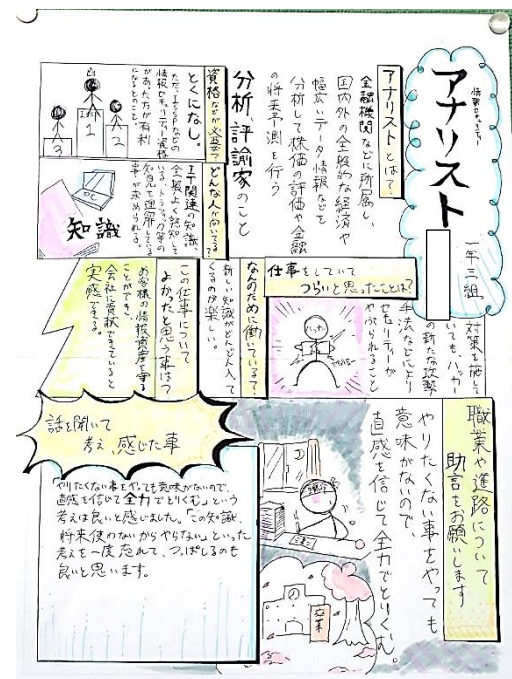 情報セキュリティ
アナリスト
一年三組
アナリストとは?
金融機関などに所属し、
国内外の全般的な経済や
幅広いデータ情報などを
分析して株価の評価や金融
の将来予測を行う
分析、評論家のこと
資格などが必要?
とくになし。
があった方が有利
になるとのこと。
1
2
3
どんな人が向いてる?
IT関連の知識、
全般よく熟知して
知見を理解している
事が求められる。
PC
知識
仕事をしていて
つらいと思ったことは?
対策を施し
ていても、ハッカー
の新たな攻勢
手法などにより
セキュリティーが
やぶられること
なんのために働いている?
新しい知識がどんどん入って
くるのが楽しい。
この仕事について
よかったと思う事は?
お客様の情報資産を守る
ことができ、
会社に貢献できていると
実感できる。
職業や進路について
助言をお願いします
やりたくない事をやっても
意味がないので、
直感を信じて全力でとりくむ。
卒業
話を聞いて
考え 感じた事
「やりたくない事をやっても意味がないので、
直感を信じて全力でとりくむ」という
考えは良いと感じました。「この知識、
将来使わないからやらない」といった
考えを一度忘れて、つっぱしるのも
良いと思います。